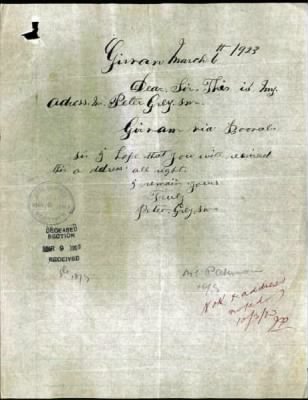 Girvan March 6th 1923
Dear Sir. This is My
adress. Mr. Peter Grey. snr.
Girvan via Booral.
sir I hope that you will received
this a ddress all right.
I remain yours
Truly
Peter. Grey. snr
DECEASED
SECTION
MAR 9 1923
RECEIVED
Nok & address
noted
10/3/23